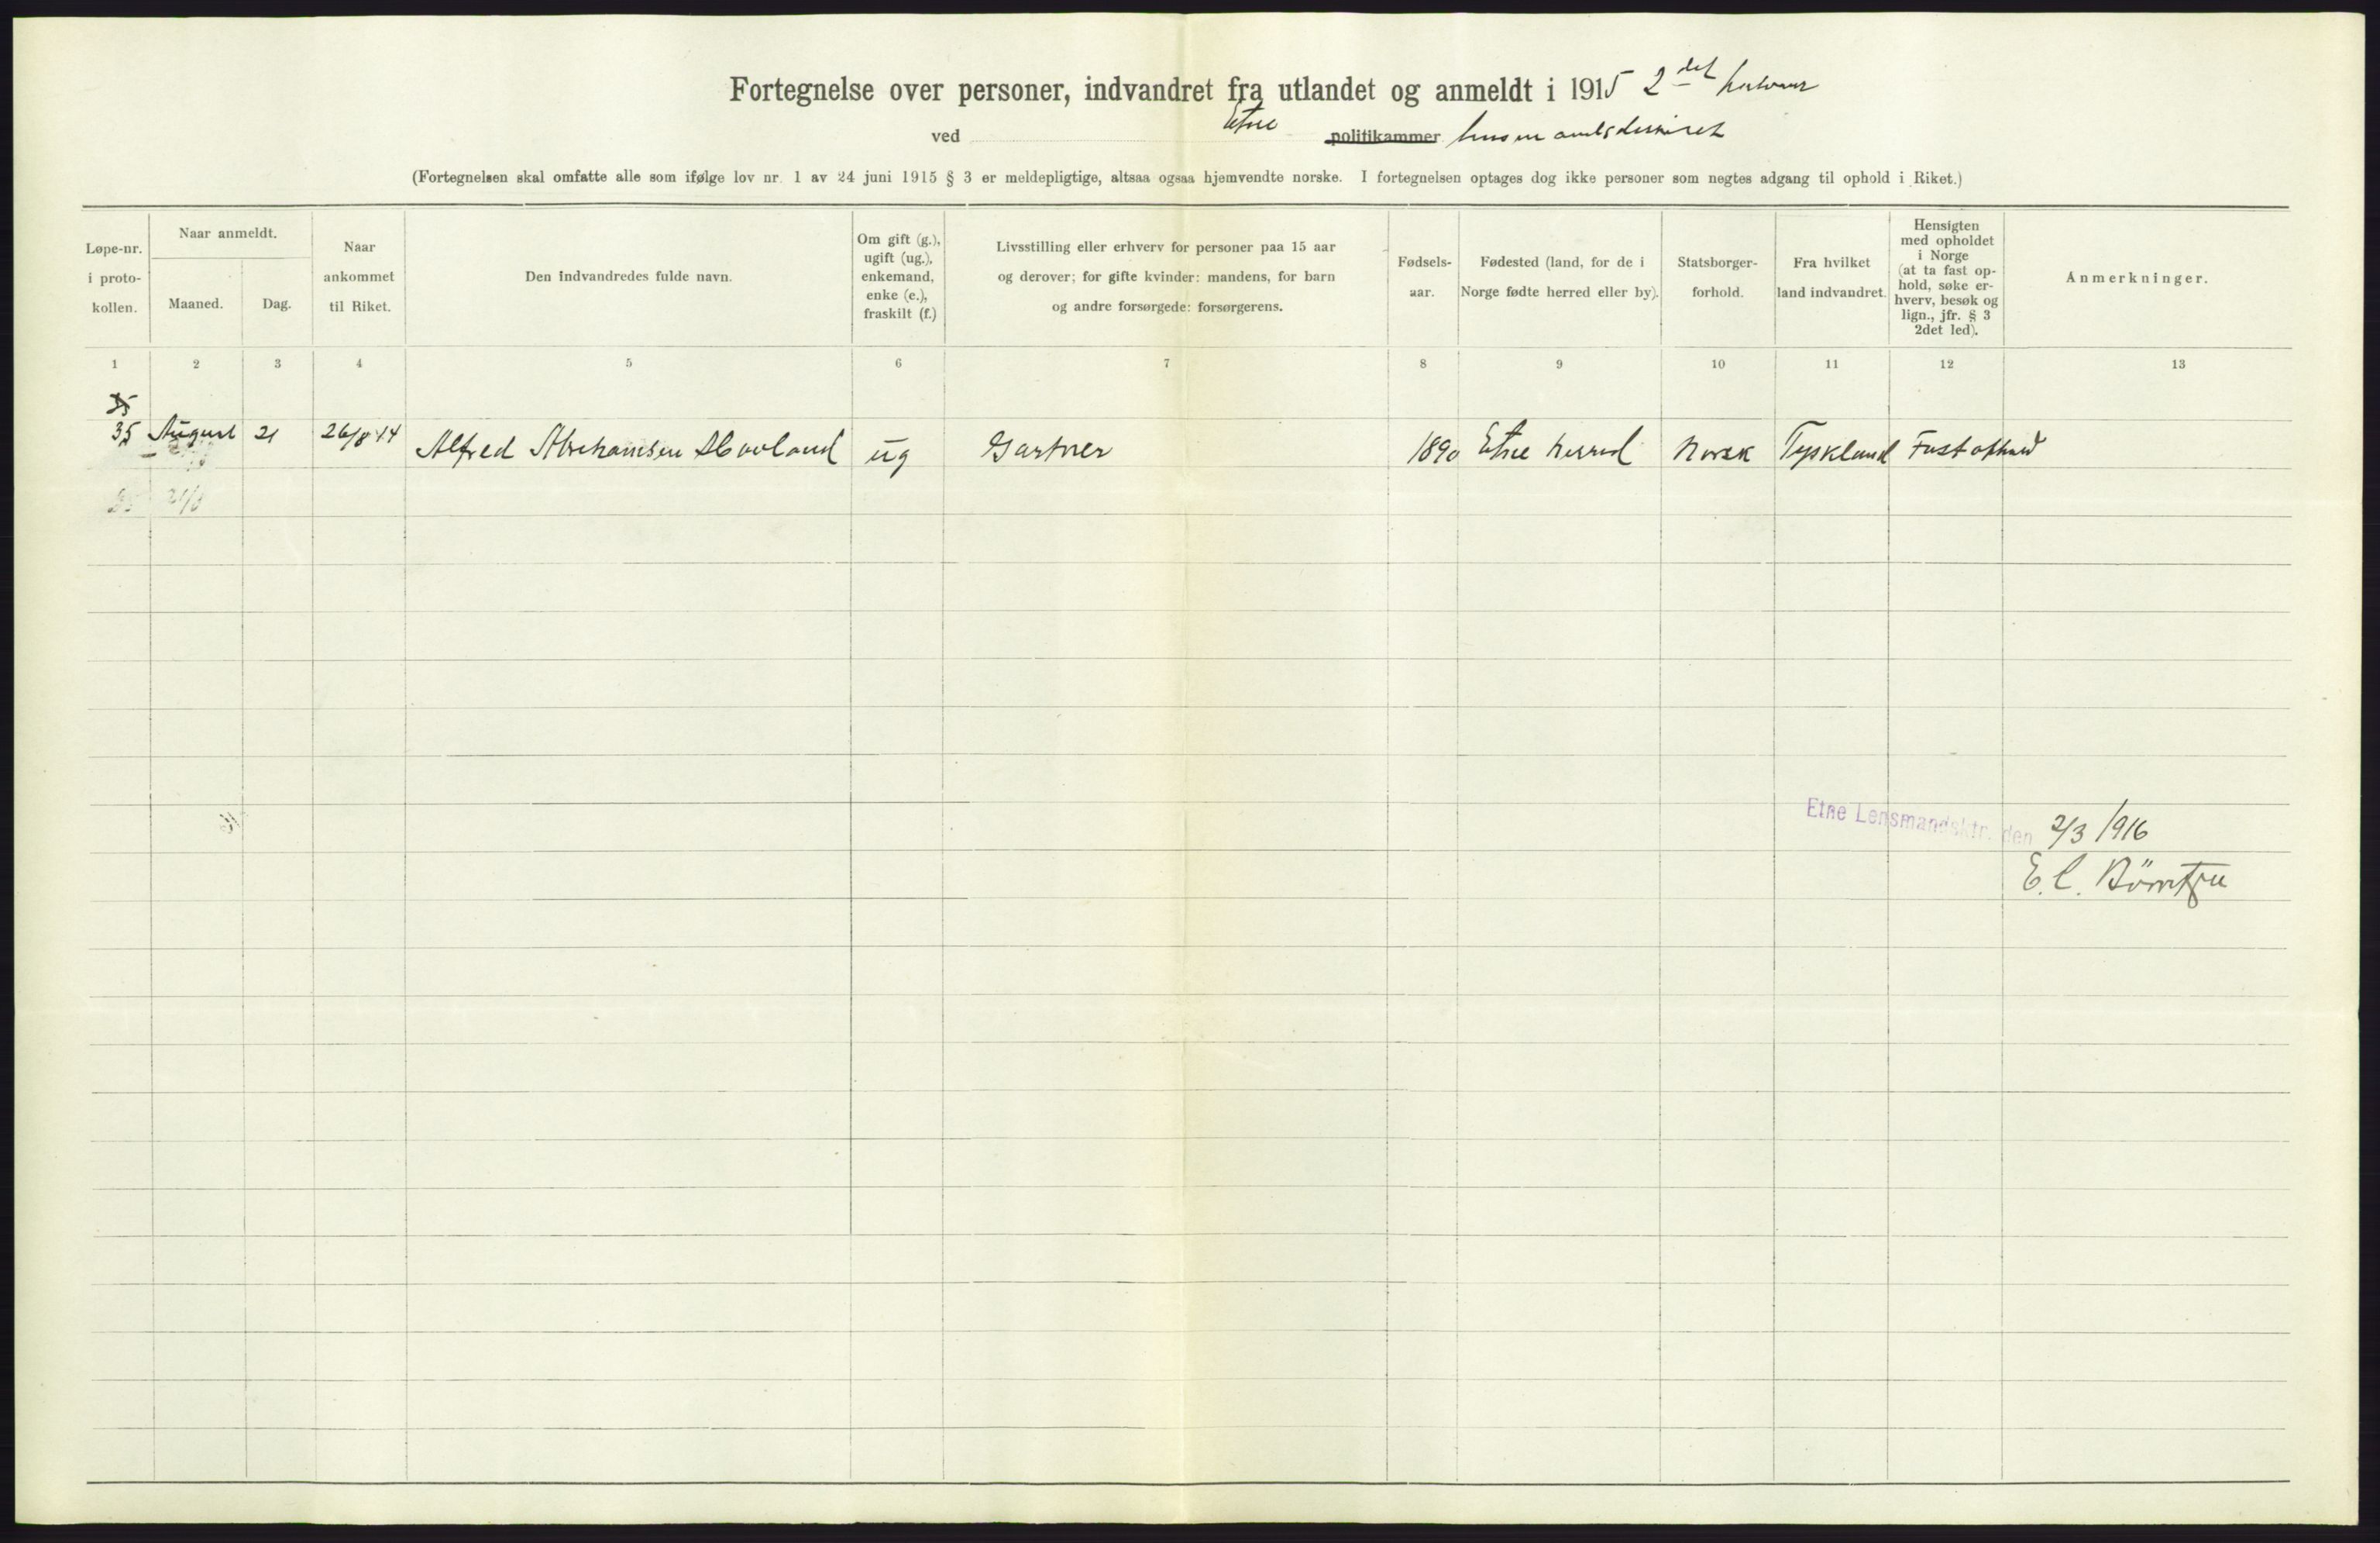 Fortegnelse over personer, indvandret fra utlandet og anmeldt i 1915 2det halvaar
ved Etne politikammer lensmandsdistrikt
(Fortegnelsen skal omfatte alle som ifølge lov nr. 1 av 24 juni 1915 § 3 er meldepligtige, altsaa ogsaa hjemvendte norske. I fortegnelsen optages dog ikke personer som negtes adgang til ophold i Riket.)
Løpe-nr.
i proto-
kollen.
Naar anmeldt.
Maaned.
Dag.
Naar
ankommet
til Riket.
Den indvandredes fulde navn.
Om gift (g.),
ugift (ug.),
enkemand,
enke (e.),
fraskilt (f.)
Livsstilling eller erhverv for personer paa 15 aar
og derover; for gifte kvinder: mandens, for barn
og andre forsørgede: forsørgerens.
Fødsels-
aar.
Fødested (land, for de i
Norge fødte herred eller by).
Statsborger-
forhold.
Fra hvilket
land indvandret.
Hensigten
med opholdet
i Norge
(at ta fast op-
hold, søke er-
hverv, besøk og
lign., jfr. § 3
2det led).
Anmerkninger.
1 2 3 4 5 6 7 8 9 10 11 12 13
35
35 August 21 26/8 14 Alfred Abrahamsen Havland ug Gartner 1890 Etne herred Norsk Tyskland Fast ophold
Etne Lensmandsktr. den 2/3 1916
E. C.